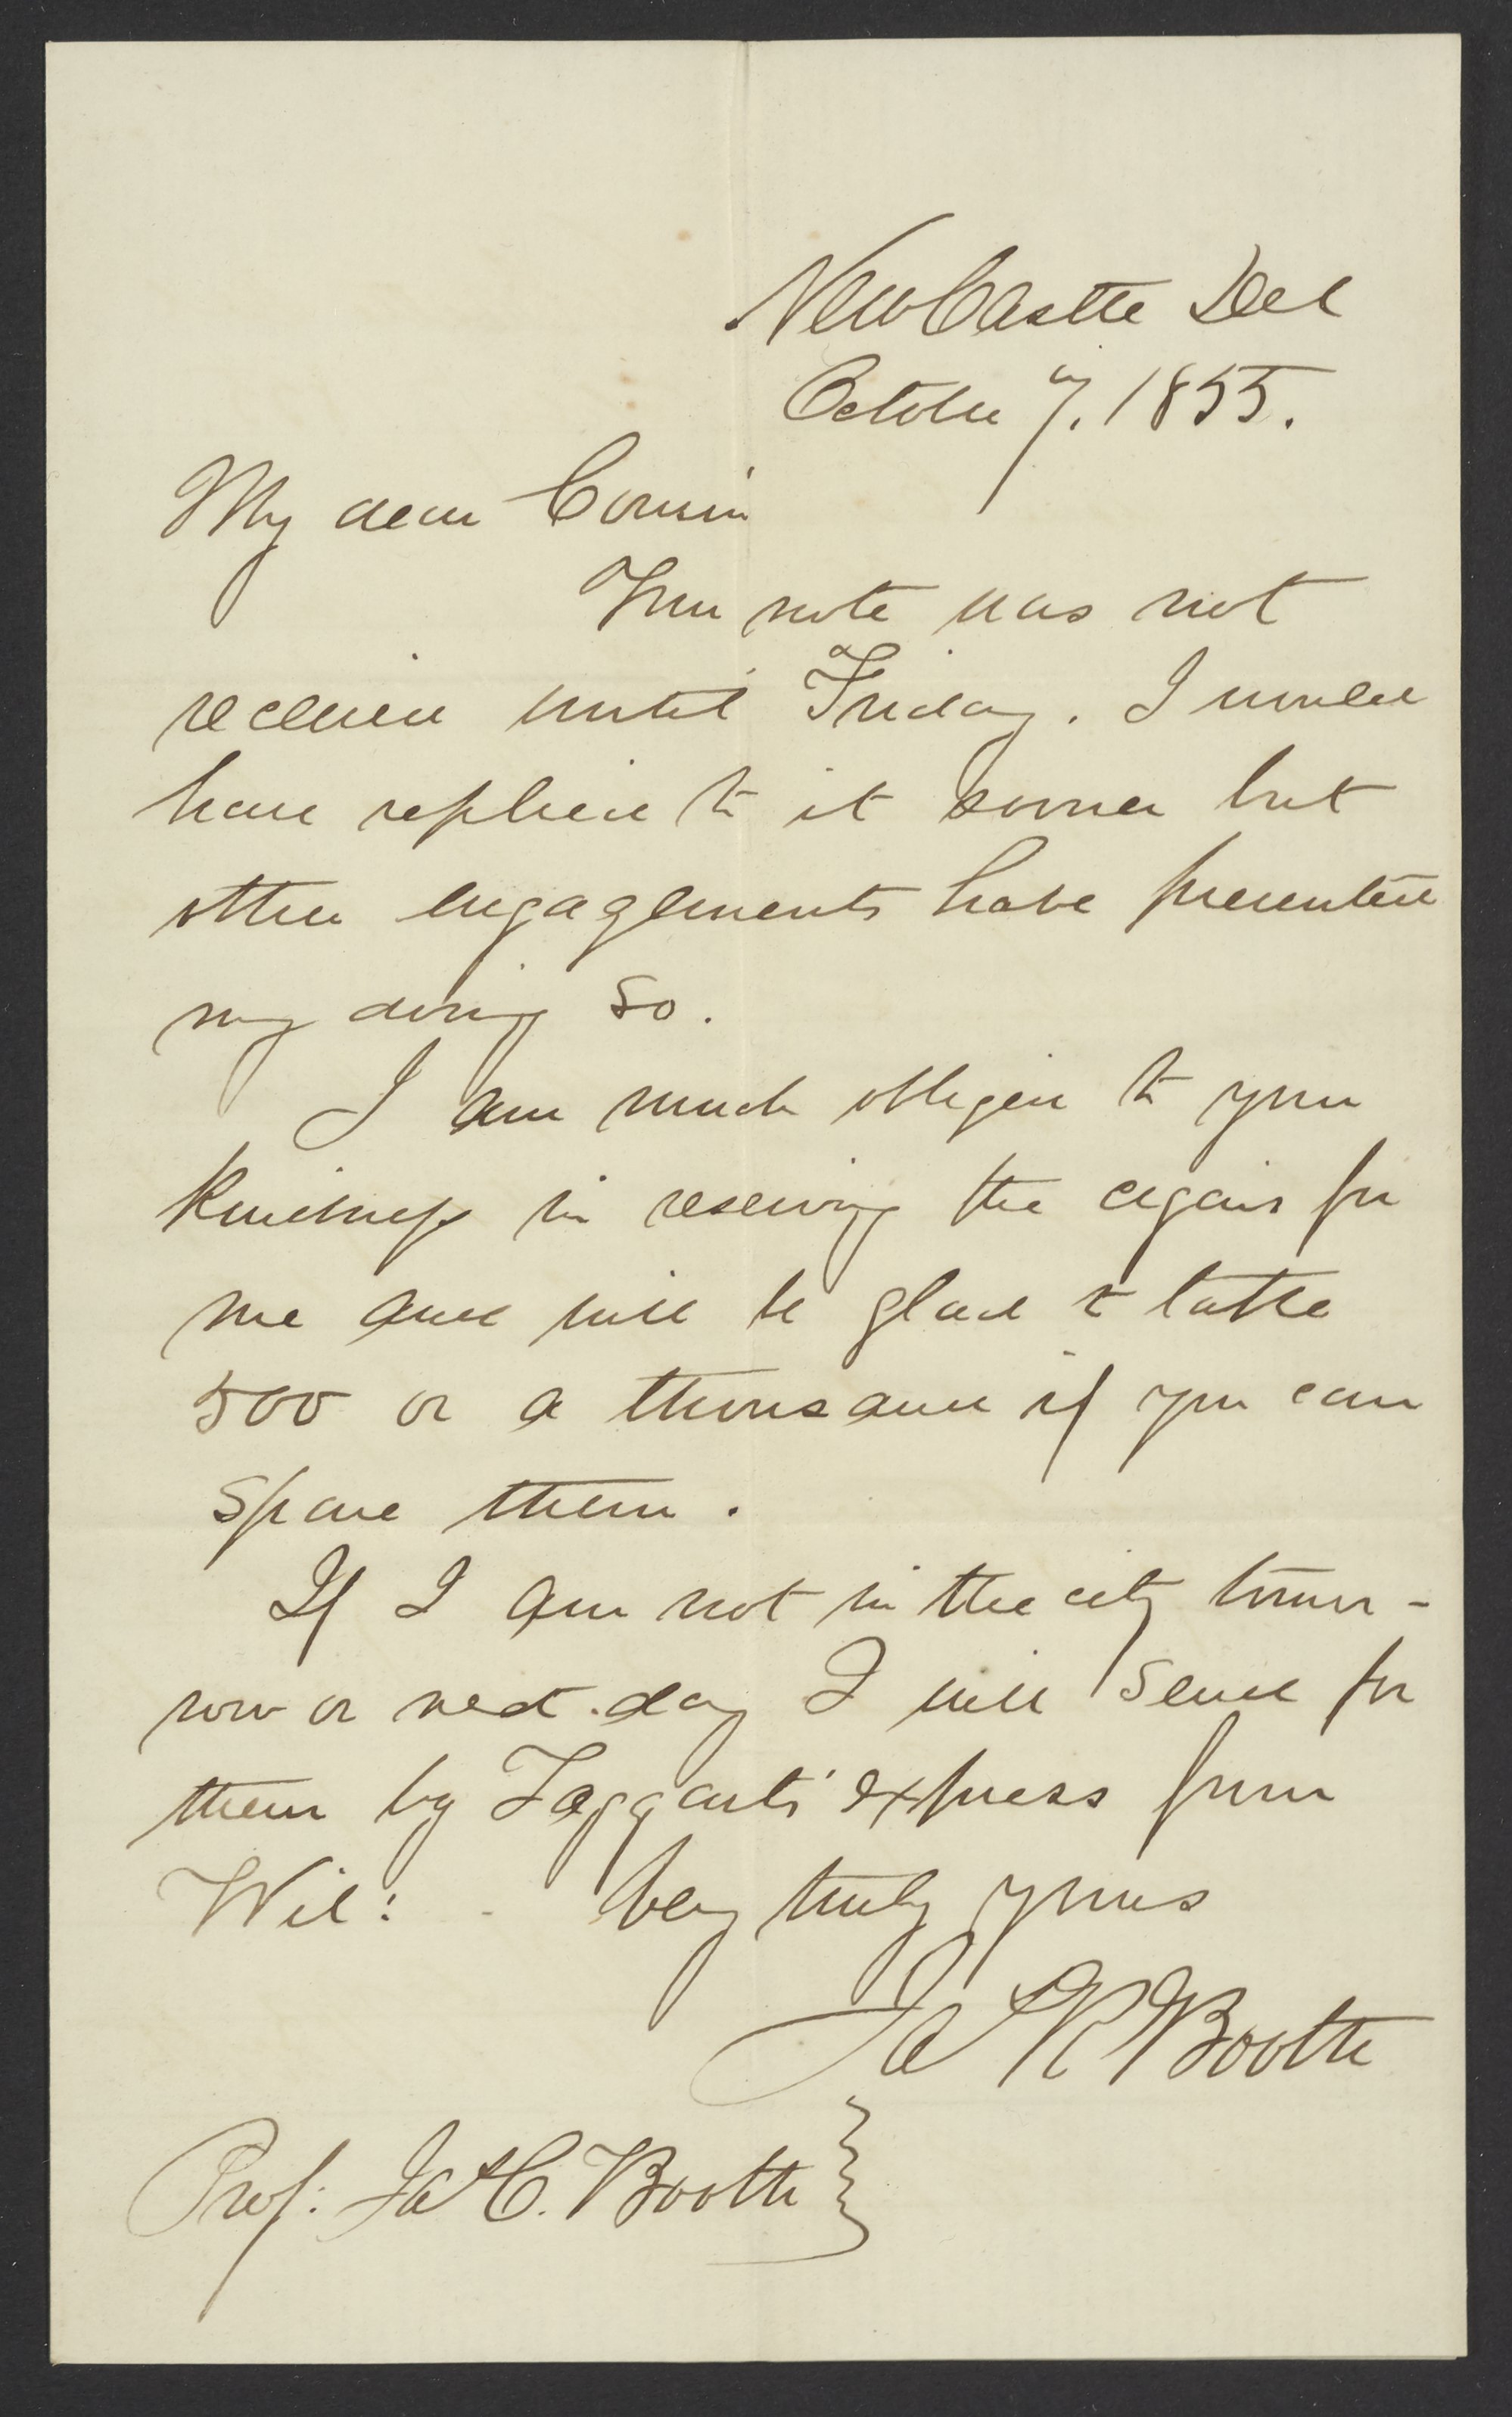 New Castle Del
October 7. 1855.
My dear Cousin
Your note was not
received until Friday. I would
have replied to it sooner but
other engagements have prevented
my doing so.
I am much obliged to your
kindness in reserving the cigars for
me and will be glad to take
500 or a thousand if you can
spare them.
If I am not in the city tomor-
row or next day I will send for
them by Taggarts' express from
Wil: Very truly yours
Jas R Booth
Prof: Jas C. Booth